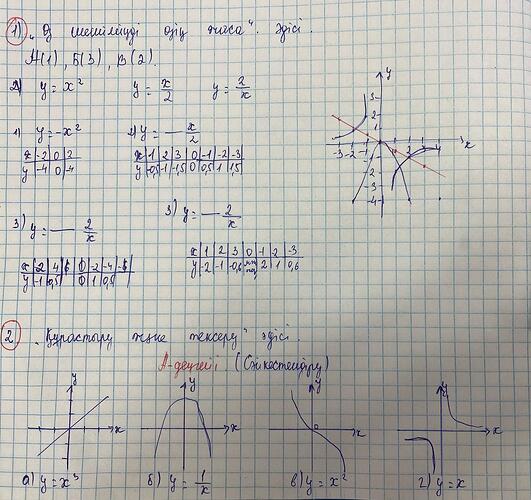 1) „Өз шешіміңді өзің жаса". әдісі.
А(1), Б(3), В(2).
y = x² y = x/2 y = 2/x
1) y = -x² 2) y = - x/2
x -2 0 2
y -4 0 -4
x 1 2 3 0 -1 -2 -3
y -0,5 -1 -1,5 0 0,5 1 1,5
3) y = - 2/x
3) y = - 2/x
x 1 2 3 0 -1 -2 -3
y -2 -1 -0,6 2 1 0,6
y
x
3
2
1
-3 -2 -1 0 1 2 3 4
-1
-2
-3
-4
2 „Құрастыру және тексеру" әдісі.
А-деңгейі (Сәйкестендіру)
y x y x y x y x
а) y = x³ б) y = 1/x в) y = x² г) y = x